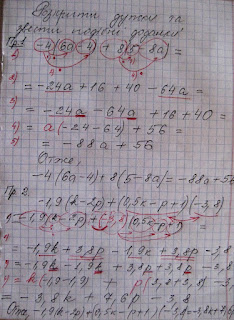 Розкрити дужки та
звести подібні доданки
Пр.1
1) -4(6a-4)+8(5-8a)=
2) = -24a+16+40-64a=
3) = -24a-64a+16+40=
4) = a(-24-64)+56=
5) = -88a+56
Отже,
-4(6a-4)+8(5-8a)=-88a+56
Пр.2.
-1,9(k-2p)+(0,5k-p+1)(-3,8)
= -1,9(k-2p)+(-3,8)(0,5k-p+1)=
= -1,9k+3,8p-1,9k+3,8p-3,8
= -1,9k-1,9k+3,8p+3,8p-3,8
= k(-1,9-1,9)+p(3,8+3,8)-3,8
= -3,8k+7,6p-3,8
Отже, -1,9(k-2p)+(0,5k-p+1)(-3,8)=-3,8k+7,6p